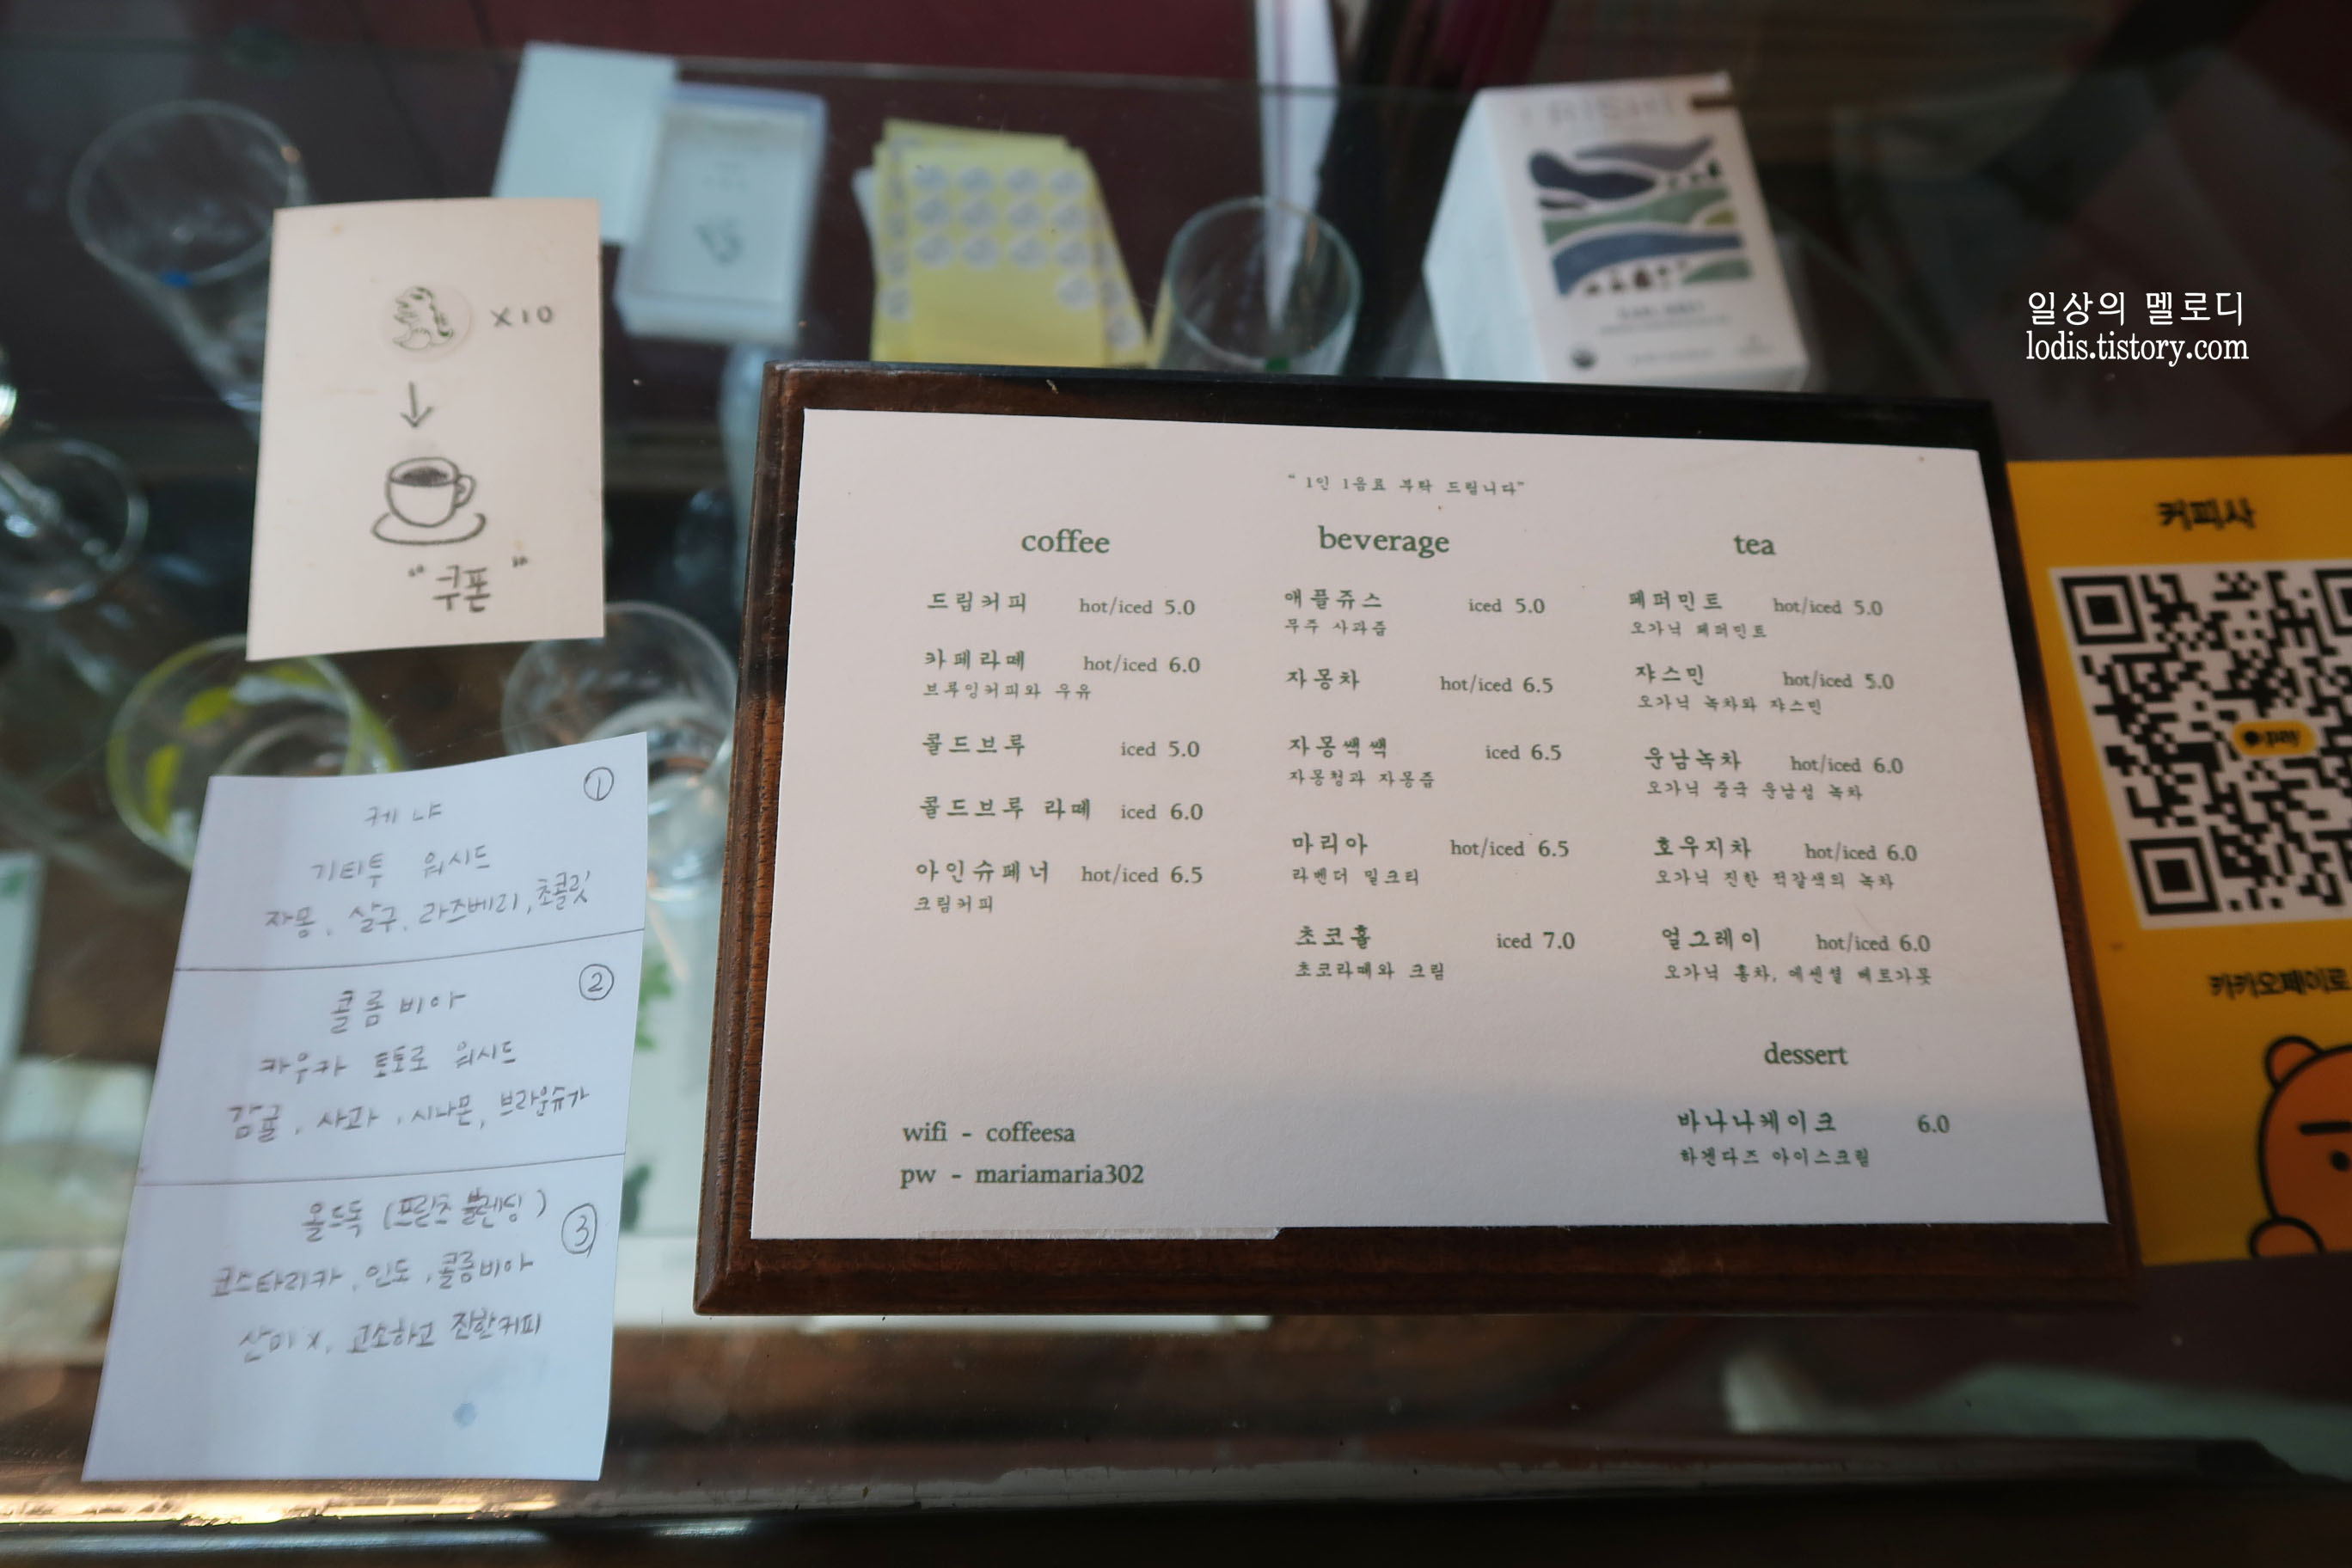 일상의 멜로디
lodis.tistory.com
x10
"쿠폰"
① 케냐
기티투 워시드
자몽, 살구, 라즈베리, 초콜릿
② 콜롬비아
카우카 토토로 워시드
감귤, 사과, 시나몬, 브라운슈가
③ 올드독 (프릳츠 블렌딩)
코스타리카, 인도, 콜롬비아
산미 x, 고소하고 진한커피
" 1인 1음료 부탁 드립니다"
coffee
드립커피 hot/iced 5.0
카페라떼 hot/iced 6.0
브루잉커피와 우유
콜드브루 iced 5.0
콜드브루 라떼 iced 6.0
아인슈페너 hot/iced 6.5
크림커피
wifi - coffeesa
pw - mariamaria302
beverage
애플쥬스 iced 5.0
무주 사과즙
자몽차 hot/iced 6.5
자몽쌕쌕 iced 6.5
자몽청과 자몽즙
마리아 hot/iced 6.5
라벤더 밀크티
초코홀 iced 7.0
초코라떼와 크림
tea
페퍼민트 hot/iced 5.0
오가닉 페퍼민트
쟈스민 hot/iced 5.0
오가닉 녹차와 쟈스민
운남녹차 hot/iced 6.0
오가닉 중국 운남성 녹차
호우지차 hot/iced 6.0
오가닉 진한 적갈색의 녹차
얼그레이 hot/iced 6.0
오가닉 홍차, 에센셜 베르가못
dessert
바나나케이크 6.0
하겐다즈 아이스크림
커피사
pay
카카오페이로